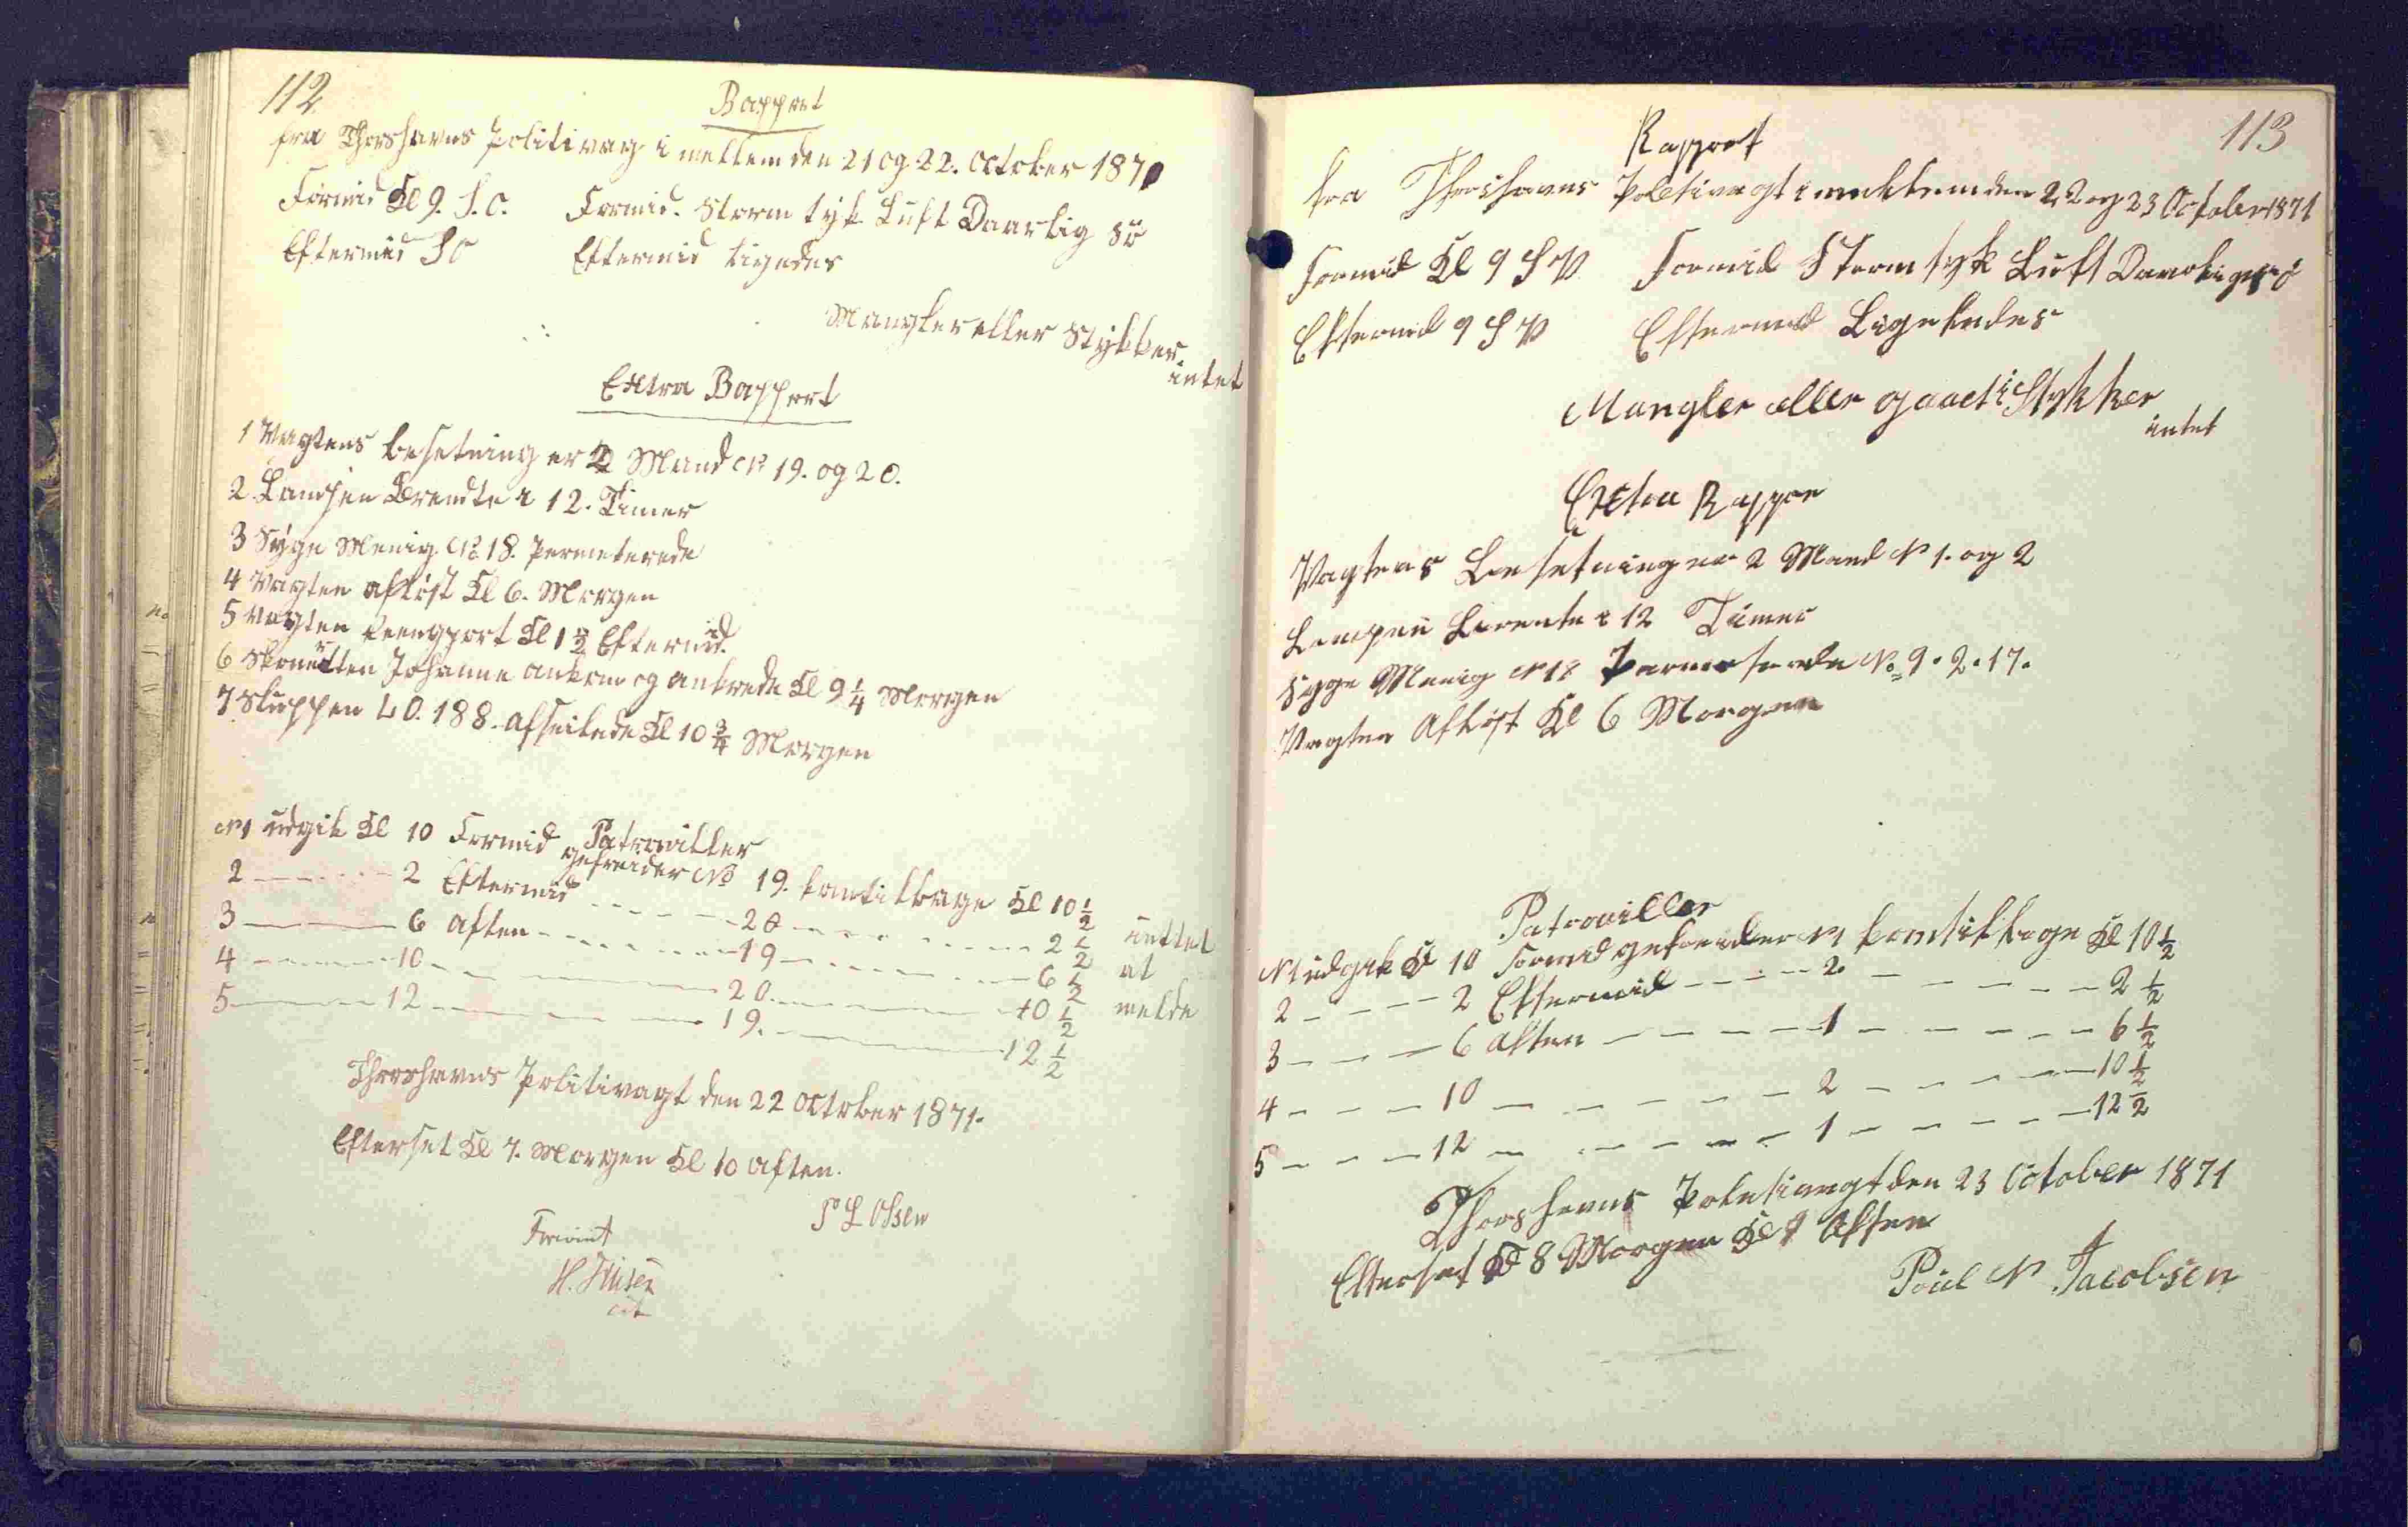 112
Rapport
fra Thorshavns Politivag i mellem den 21 og 22. October 1871
Formid Kl 9. S.O. Formid. Storm tyk Luft Daarlig Sö
Eftermid SO Eftermid ligedes
Mangler eller Stykker.
intet
Extra Rapport
1 Vagtens besetning er 2 Mand No 19. og 20.
2 Lampen Brendte i 12. Timer
3 Syge Menig No 18. Permeterede
4 Vagten aflöst Kl 6. Morgen
5 Vagten reengjort Kl 1 1/2 Eftermid.
6 Skonerten Johanne ankom og ankrede Kl 9 1/4 Morgen
7 Sluppen LO. 188. afseilede Kl 10 3/4 Morgen
Patrouiller
No 1 udgik Kl 10 Formid gefreider No 19. kom tilbage Kl 10 1/2
2 - - - 2 Eftermid - - - 20 - - - 2 1/2 inttet
3 - - - 6 Aften - - - 19 - - - 6 1/2 at
4 - - - 10 - - - 20. - - - 10 1/2 melde
5 - - - 12 - - - 19. - - - 12 1/2
Thorshavns Politivagt den 22 October 1871.
Efterset Kl 7. Morgen Kl 10 Aften.
P L Olsen
113
Rapport
fra Thorshavns Poletivagt i mellem den 22 og 23 October 1871
Formid Kl 9 S V Formid Storm tyk Luft Daarlig sö
Eftermid 9 S V Eftermid Ligeledes
Mangler eller gaaet i Stykker
intet
Extra Rappor
Vagtens Besetning er 2 Mand No 1. og 2
Lampen Brente i 12 Timer
Syge Menig No 18 Permeterede No 9. 2. 17.
Vagten Aflöst Kl 6 Morgen
Patrouiller
No 1 udgik Kl 10 Formid gefreider No 1 kom tilbage Kl 10 1/2
2 - - - 2 Eftermid - - - 2 - - - 2 1/2
3 - - - 6 Aften - - - 1 - - - 6 1/2
4 - - - 10 - - - 2 - - - 10 1/2
5 - - - 12 - - - 1 - - - 12 1/2
Thorshavns Poletivagt den 23 October 1871
Efterset Kl 8 Morgen Kl 9 Aften
Poul N Jacobsen